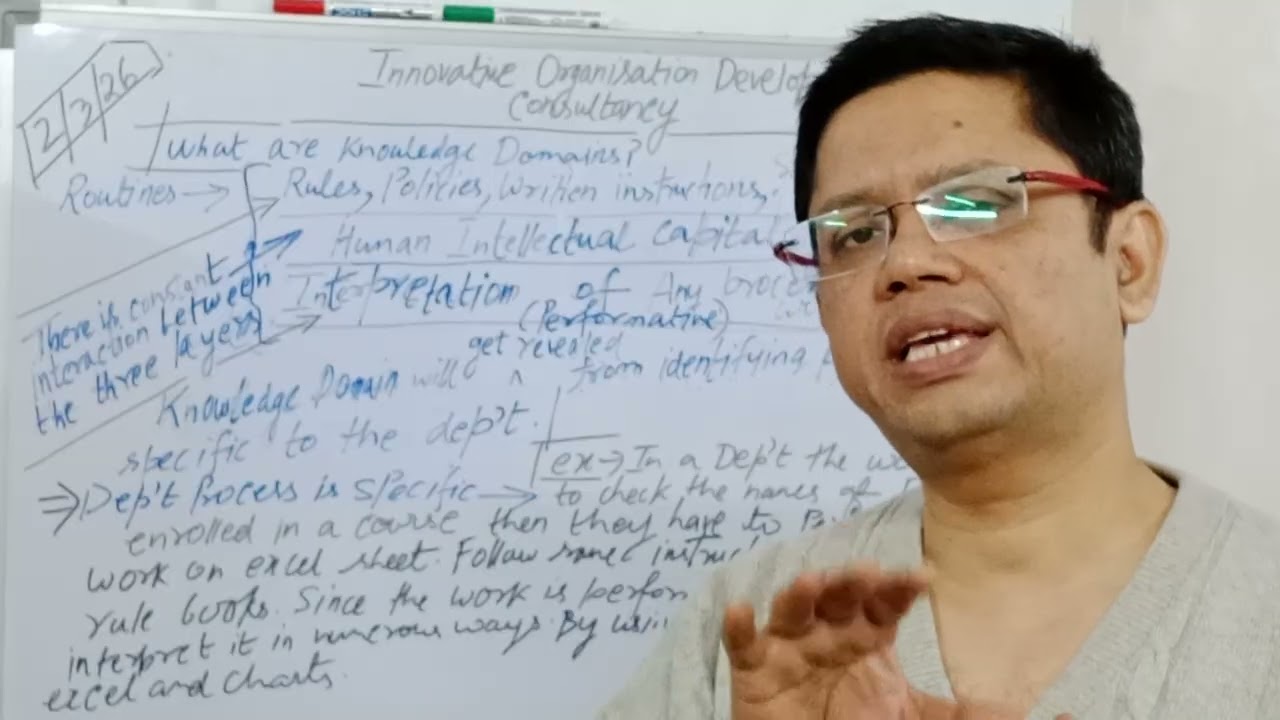 2/3/26
Innovative Organisation Develop
Consultancy
What are Knowledge Domains?
Routines → Rules, Policies, Written instructions,
Human Intellectual Capital
Interpretation of Any
(Performative)
There is constant
interaction between
the three layers
get revealed
Knowledge Domain will ^ from identifying
specific to the dep't.
⇒ Dep't Process is specific →
ex → In a Dep't the
to check the names of
enrolled in a course then they have to
work on excel sheet. Follow some instruc
rule books. Since the work is perfor
interpret it in numerous ways. By usin
excel and charts.